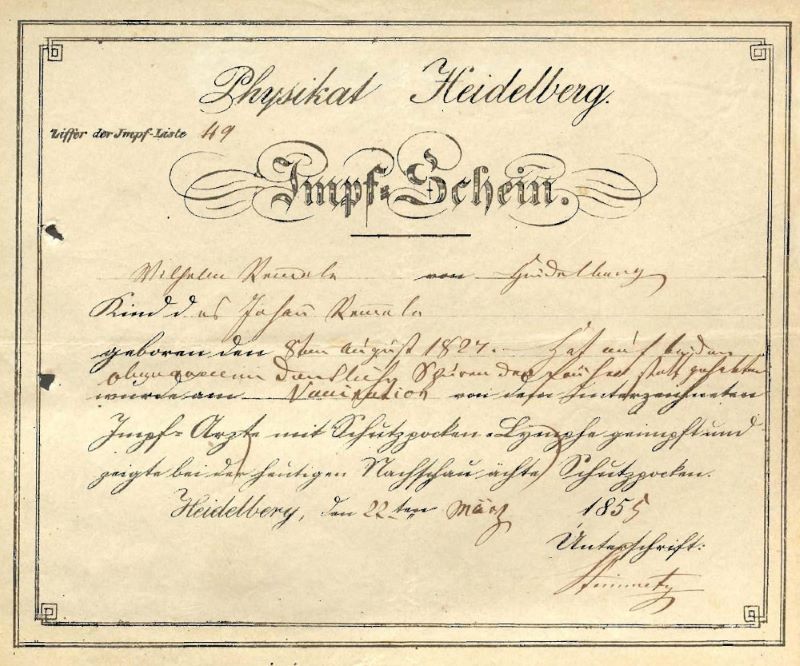 Physikat Heidelberg.
Ziffer der Impf-Liste 49
Impf-Schein.
Wilhelm von Heidelberg
Kind des Johann
geboren den 8ten August 1827. Hat auf beiden
deutliche Spuren der früher statt gehabten
wurde am Vaccination von dem Unterzeichneten
Impf-Arzte mit Schutzpocken-Lymphe geimpft und
zeigte bei der heutigen Nachschau ächte Schutzpocken.
Heidelberg, den 22ten März 1855
Unterschrift: